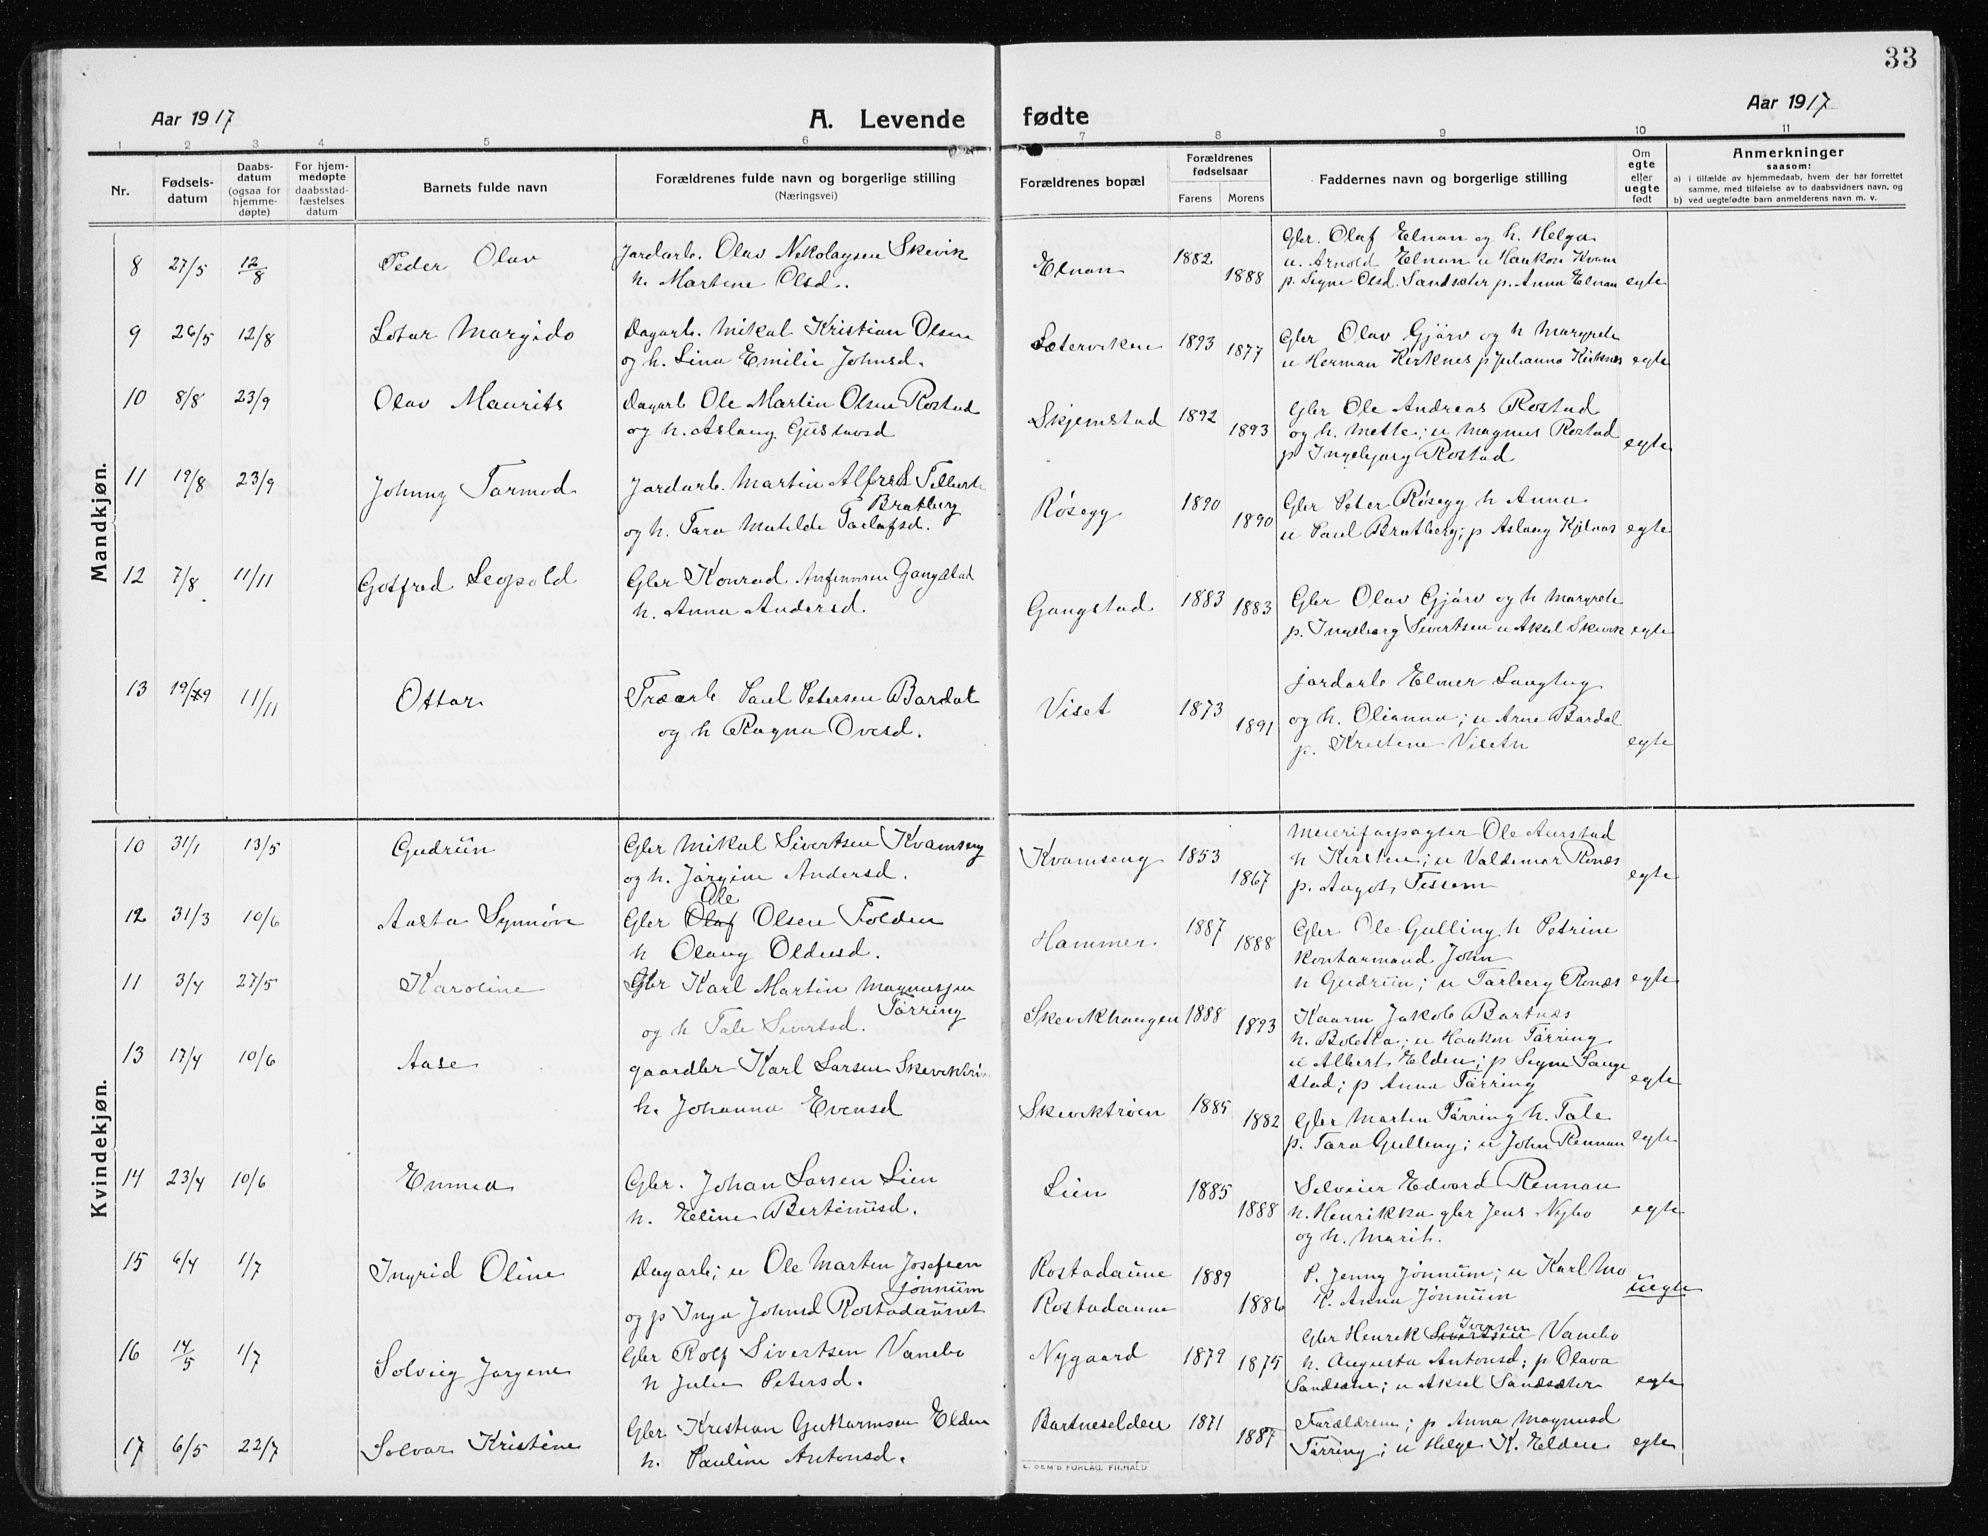 33
Aar 1917
A. Levende fødte
Aar 1917
1 2 3 4 5 6 7 8 9 10 11
Nr.
Fødsels-
datum
Daabs-
datum
(ogsaa for
hjemme-
døpte)
For hjem-
medøpte
daabsstad-
fæstelses
datum
Barnets fulde navn
Forældrenes fulde navn og borgerlige stilling
(Næringsvei)
Forældrenes bopæl
Forældrenes
fødselsaar
Farens Morens
Faddernes navn og borgerlige stilling
Om
egte
eller
uegte
født
Anmerkninger
saasom:
a) i tilfælde av hjemmedaab, hvem der har forrettet
samme, med tilføielse av to daabsvidners navn, og
b) ved uegtefødte barn anmelderens navn m. v.
Mandkjøn.
8 27/5 12/8 Peder Olav
Jordarb. Olav Nikolaysen Skevik
h. Martine Olsd.
Elnan 1882 1888
Gbr. Olaf Elnan og h. Helga
u. Arnold Elnan u Haakon Kvam
p. Signe Olsd. Sandsæter p. Anna Elnan egte
9 26/5 12/8 Lotar Margido
Dagarb. Mikal Kristian Olsen
og h. Lina Emilie Johnsd.
Sætervikén 1893 1877
Gbr Olav Gjørv og h Margrete
u Herman Kirknes p Julianna Kirknes egte
10 8/8 23/9 Olav Maurits
Dagarb Ole Martin Olsen Rostad
og h. Aslaug Gustavsd
Skjemstad 1892 1893
Gbr Ole Andreas Rostad
og h. Mette; u Magnus Rostad
p Ingebjørg Rostad egte
11 19/8 23/9 Johnny Tormod
Jordarb. Martin Alfred
Bratberg
og h. Tora Matilde
Røsegg 1890 1890
Gbr Peter Røsegg h Anna
u Paul Bratberg; p Aslaug egte
12 7/8 11/11 Gotfred Leopold
Gbr Konrad Anfinnsen Gangstad
h. Anna Andersd.
Gangstad 1883 1883
Gbr Olav Gjørv og h Margrete
p. Ingeborg Sivertsen u Aksel Skevik egte
13 19/9 11/11 Ottar
Træarb Paul Petersen Bardal
og h Ragna Ovesd.
Viset 1873 1891
jordarb Elmer Langhug
og h. Olianna; u Arne Bardal
p. Kristine Viseth egte
Kvindekjøn.
10 31/1 13/5 Gudrun
Gbr Mikal Sivertsen Kvamseng
og h. Jørgine Andersd.
Kvamseng 1853 1867
Meieriforpagter Ole Aurstad
h Kirsten; u Valdemar Rønes
p. Aagot Tessem egte
12 31/3 10/6 Aasta Synnøve
Ole
Gbr Olaf Olsen Folden
h Olaug Oldusd.
Hammer 1887 1888
Gbr Ole Gulling h Petrine
Kontormand John
h Gudrun; u Torberg Rønes egte
11 3/4 27/5 Karoline
Gbr Karl Martin Magnussen
Tørring
og h Tale Sivertsd.
Skevikhaugen 1888 1893
Kaarm Jakob Bartnes
h. Boletta; u Haakon Tørring
u Albert Elden; p Signe Sauge
stad; p Anna Tørring egte
13 17/4 10/6 Aase
gaardbr Karl Larsen
h. Johanna Evensd
Skeviktrøen 1885 1882
Gbr Martin Tørring h. Tale
p. Tora Gulling; u John Rennan egte
14 23/4 10/6 Emma
Gbr. Johan Larsen Lien
h. Eline Bertinusd.
Lien 1885 1888
Selveier Edvard Rennan
h. Henrikka gbr Jens Nybo
og h. Marit. egte
15 6/4 1/7 Ingrid Oline
Dagarb; u Ole Martin Josefsen
Jönnum
og p Inga Johnsd Rostadaunet
Rostadaune 1889
Rostadaune 1886
P. Jenny Jönnum; u Karl Mo
K. Anna Jönnum uegte
16 14/5 1/7 Solveig Jørgene
Gbr Rolf Sivertsen Vanebo
h Julie Petersd.
Nygaard 1879 1875
Iversen
Gbr Henrik Sivertsen Vanebo
h. Augusta Antonsd; p Olava
Sandsæter; u Aksel Sandsæter egte
17 6/5 22/7 Solvor Kristine
Gbr Kristian Guttormsen Elden
h. Pauline Antonsd.
Bartneselden 1871 1887
Forældrene; p Anna Magnusd
Tørring; u Helge K. Elden egte